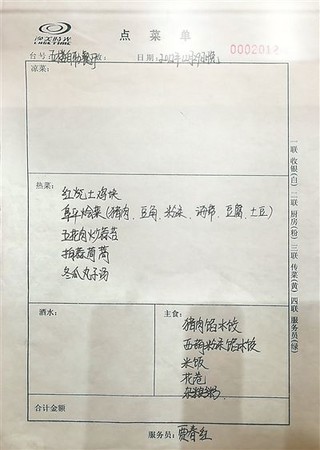 漫美時光
点菜单
0002012
台号 五楼自助餐厅 日期:2012年12月29日晚
凉菜:
热菜:
红烧土鸡块
阜平烩菜(猪肉、豆角、粉条、海带、豆腐、土豆)
五花肉炒蒜苔
拍蒜茼蒿
冬瓜丸子汤
酒水:
主食:
猪肉馅水饺
西葫粉条馅水饺
米饭
花卷
杂粮粥
合计金额
服务员: 贾春红
一联 收银(白) 二联 厨房(粉) 三联 传菜(黄) 四联 服务员(绿)